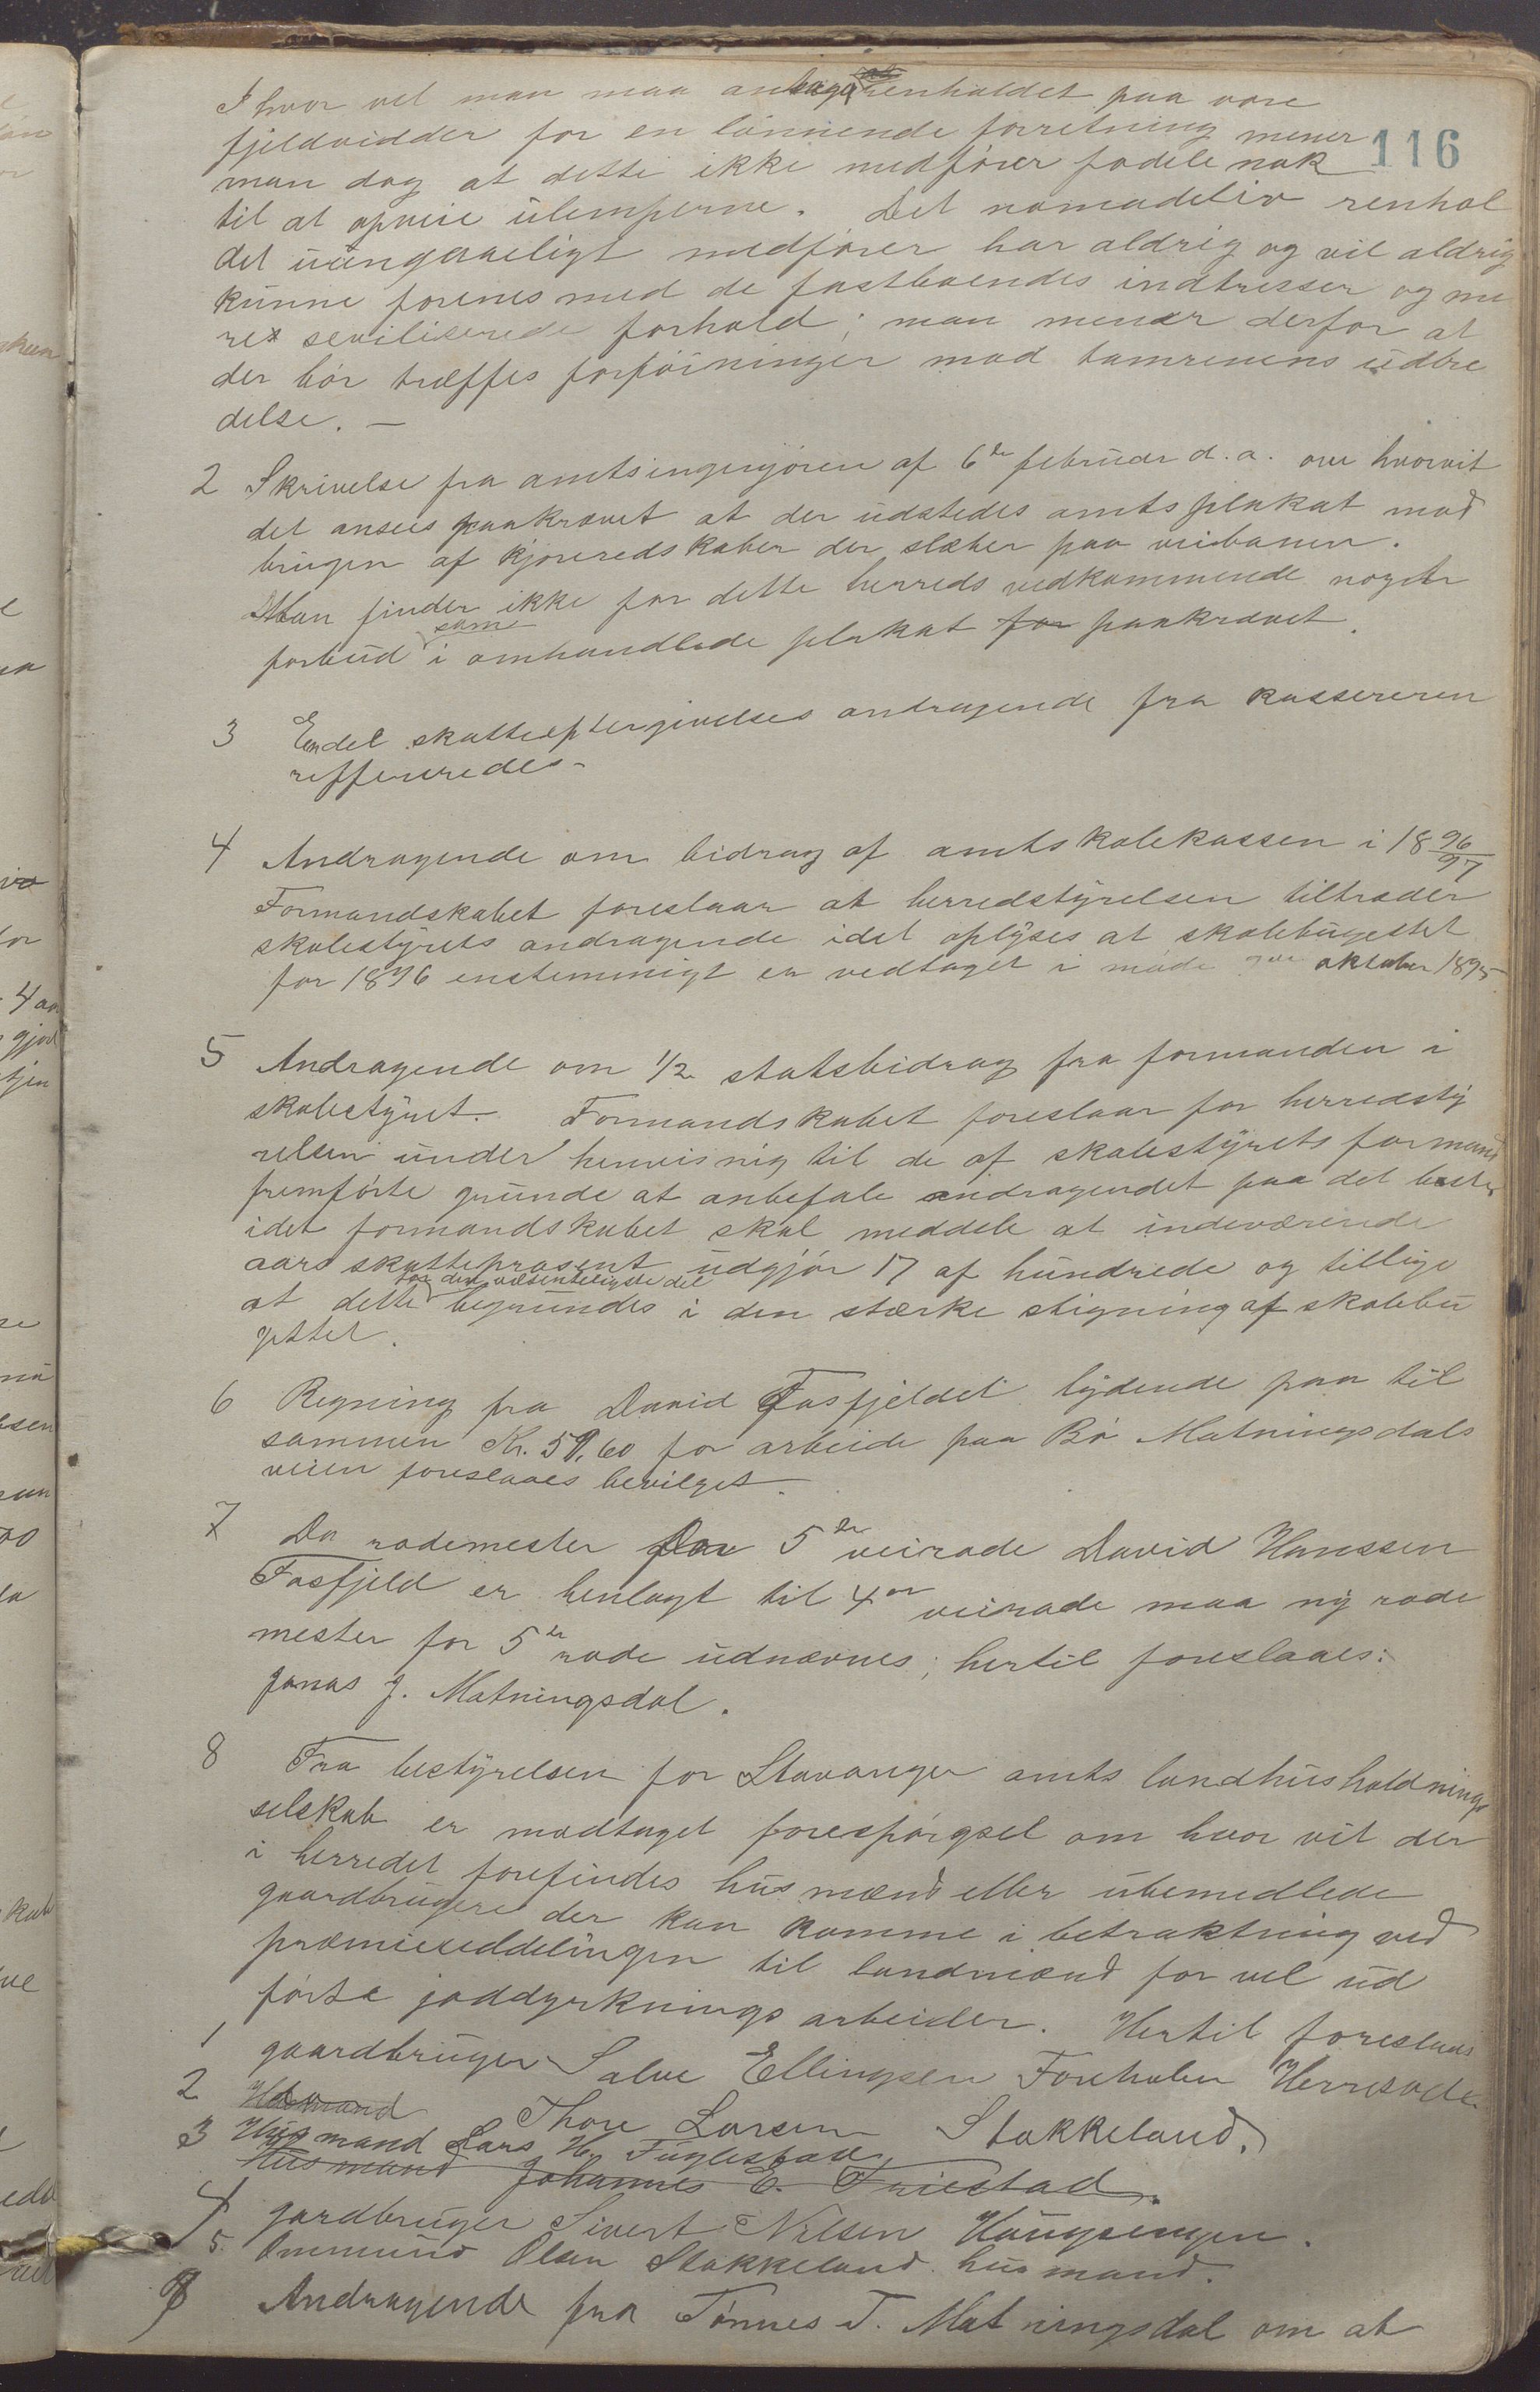 I hvor vel man maa antage renholdet paa vore
fjeldvidder for en lönnende forretning mener
116
man dog at dette ikke medförer fodele nok
til at opveie ülemperne. Det nomadeliv renhol
det üüngaaeligt medförer har aldrig og vil aldrig
künne forenes med de fastboendes indtresser og me
re seviliserede forhold; man mener derfor at
der bör træffes forföininger mod tamrenens üdbre
delse. —
2 Skrivelse fra amtsingeniören af 6te februar d. a. om hvorvit
det ansees paakrævet at der üdstedes amtsplakat mod
brügen af kjöreredskaber der slæber paa veibanen.
Man finder ikke for dette herreds vedkommende noget
forbüd som i omhandlede plakat for paakrævet.
3 Endel skatteeftergivelses andragende fra kassereren
reffereredes.
4 Andragende om bidrag af amtskolekassen i 1896/97
Formandskabet foreslaar at herredstÿrelsen tiltræder
skolestÿrets andragende idet oplÿses at skolebügettet
for 1896 enstemmigt er vedtaget i möde oktober 1895.
5 Andragende om 1/2 statsbidrag fra formanden i
skolestÿret. Formandskabet foreslaar for herredstÿ
relsen ünder henvisnig til de af skolestÿrets formand
fremförte gründe at anbefale andragendet paa det beste
idet formandskabet skal meddele at indeværende
aars skatteprosent üdgjör 17 af hündrede og tillige
at dette for den væsenteligste del begründes i den stærke stigning af skolebü
gettet.
6 Regning fra David Fasfjeldet lÿdende paa til
sammen Kr. 59,60 for arbeide paa Bö Matningsdals
veien foreslaaes bevilget.
7 Da rodemester for 5te veirode David Hanssen
Fasfjeld er henlagt til 4de veirode maa nÿ rode
mester for 5te rode üdnævnes; hertil foreslaaes:
Jonas J. Matningsdal.
8 Fra bestÿrelsen for Stavanger amts landhüsholdnings
selskab er modtaget forespörgsel om hvor vit der
i herredet forefindes hüsmænd eller übemedlede
gaardbrügere der kan komme i betraktning ved
præmieüddelingen til landmænd for vel üd
förte jorddyrknings arbeider. Hertil foreslaaes
1 gaardbrüger Salve Ellingsen Herresode
2 Husmand Thore Larsen Stokkeland.
3 Hüsmand Lars H. Füglestad
Hüsmand Johannes E. Friestad.
4 gardbrüger Sivert Nilsen Haugsengen.
5. Ommünd Olsen Stokkeland hüsmand.
9 Andragende fra Tönnes T. Matningsdal om at